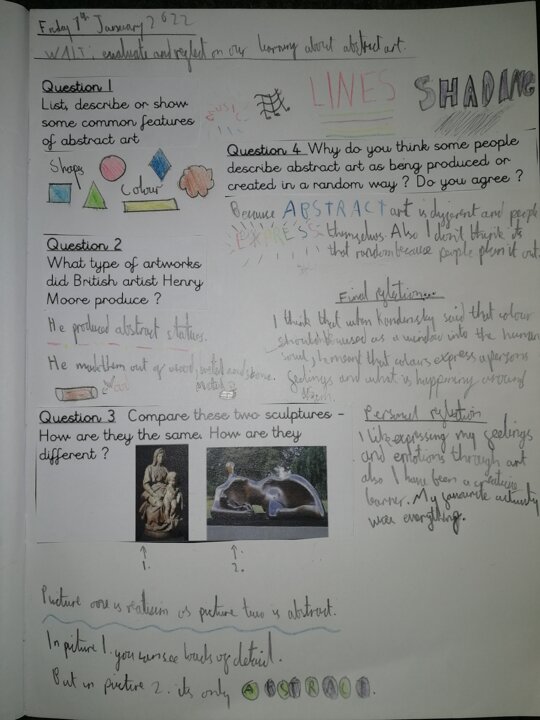 Friday 1st January 2022
WALT: evaluate and reflect on our learning about abstract art.
Question 1
List, describe or show
some common features
of abstract art
Shape
Colour
LINES
SHADING
Question 2
What type of artworks
did British artist Henry
Moore produce ?
He produced abstract statues.
He made them out of wood, and stone.
wood
Question 3 Compare these two sculptures -
How are they the same. How are they
different ?
1.
2.
Picture one is realism as picture two is abstract.
In picture 1. you can see loads of detail.
But in picture 2. its only ABSTRACT.
Question 4 Why do you think some people
describe abstract art as being produced or
created in a random way ? Do you agree ?
Because ABSTRACT art is different and people
EXPRESS themselves. Also I don't think its
that random because people plan it out.
Final reflection...
I think that when Kandinsky said that colour
should be used as a window into the human
soul, he meant that colours express a persons
feelings and what is happening around
them.
Personal reflection
I like expressing my feelings
and emotions through art
also I have been a creative
learner. My favourite activity
was everything.